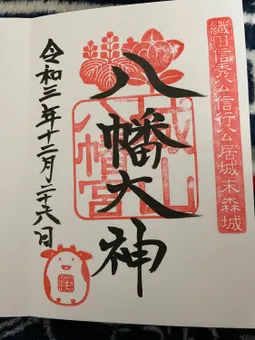 織田信秀公信行公居城末森城
八幡大神
城山
八幡宮
令和三年十二月二十六日